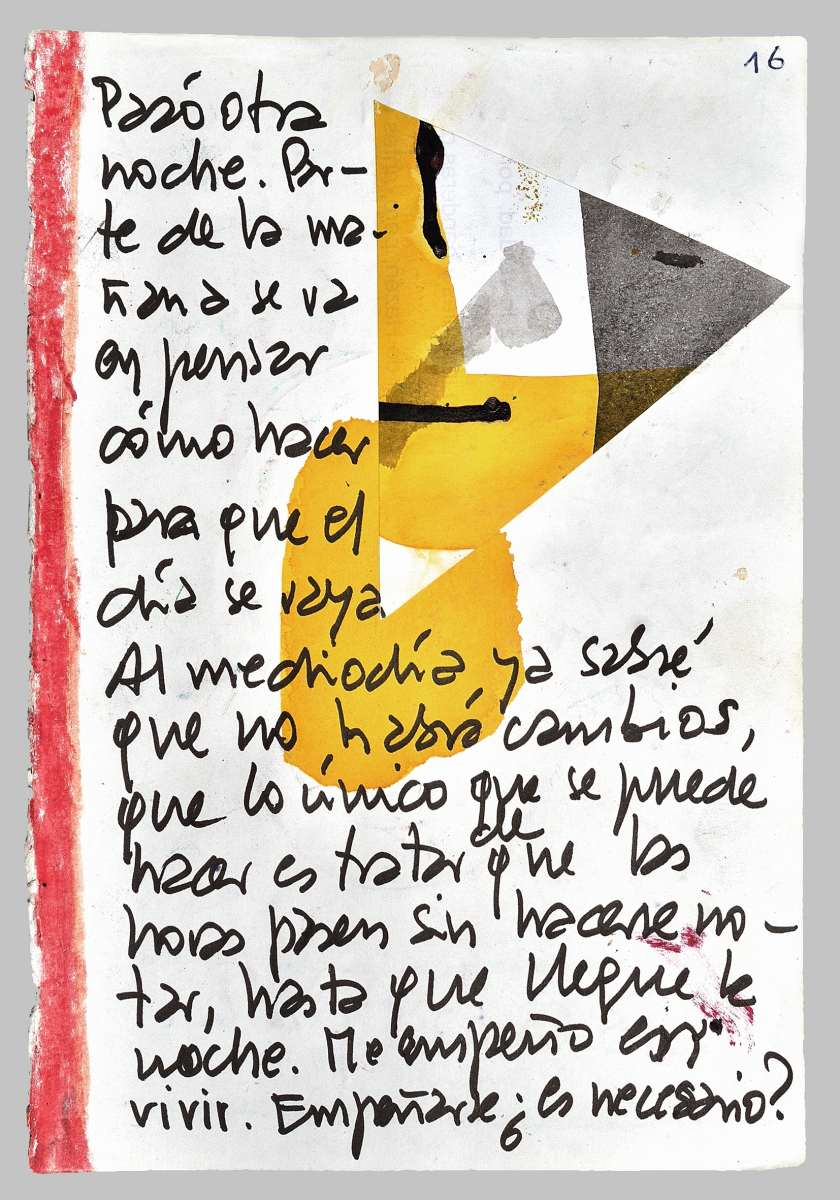 16
Pasó otra
noche. Par-
te de la ma-
ñana se va
en pensar
cómo hacer
para que el
día se vaya
Al mediodía ya sabré
que no habrá cambios,
que lo único que se puede
hacer es tratar de que las
horas pasen sin hacerse no-
tar, hasta que llegue la
noche. Me empeño en
vivir. Empeñarse ¿es necesario?